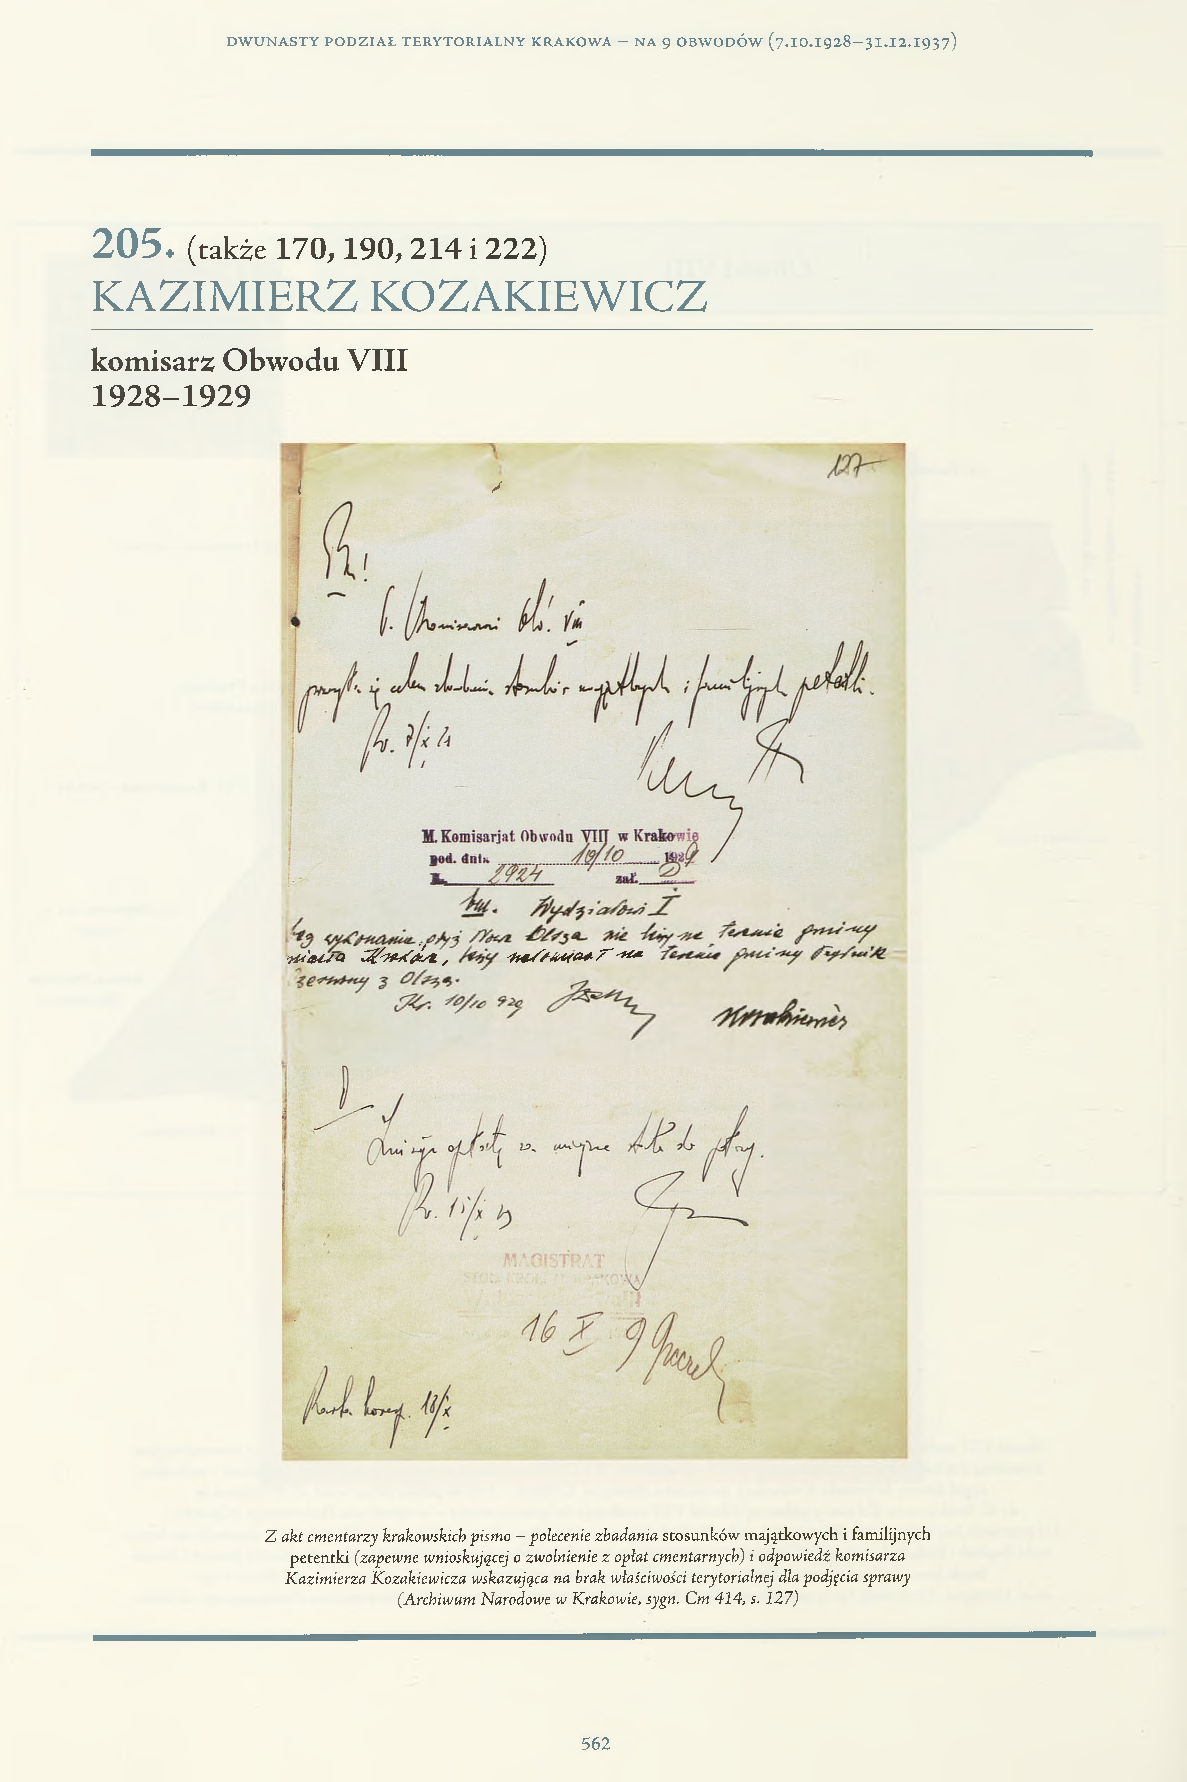 DWUNASTY PODZIAŁ TERYTORIALNY KRAKOWA – NA 9 OBWODÓW (7.10.1928–31.12.1937)
205. (także 170, 190, 214 i 222)
KAZIMIERZ KOZAKIEWICZ
komisarz Obwodu VIII
1928–1929
127
P. Komisarzowi Obw. VIII
się celem zbadania stosunków majątkowych i familijnych petentki.
Kr. 7/X
M. Komisarjat Obwodu VIII w Krakowie
pod. dnia 10/10 1929
L. 2924 zał.
Wydziałowi I
wykonania, przy Nowa Olsza nie leży na terenie gminy
miasta Kraków, leży natomiast na terenie gminy Prądnik
Czerwony z Olszą.
Kr. 10/10 929
Kozakiewicz
opłatę za miejsce do
Kr. 15/X 29
MAGISTRAT
STOŁ. KRÓL. M. KRAKOWA
16 X 9
18/X
Z akt cmentarzy krakowskich pismo – polecenie zbadania stosunków majątkowych i familijnych
petentki (zapewne wnioskującej o zwolnienie z opłat cmentarnych) i odpowiedź komisarza
Kazimierza Kozakiewicza wskazująca na brak właściwości terytorialnej dla podjęcia sprawy
(Archiwum Narodowe w Krakowie, sygn. Cm 414, s. 127)
562